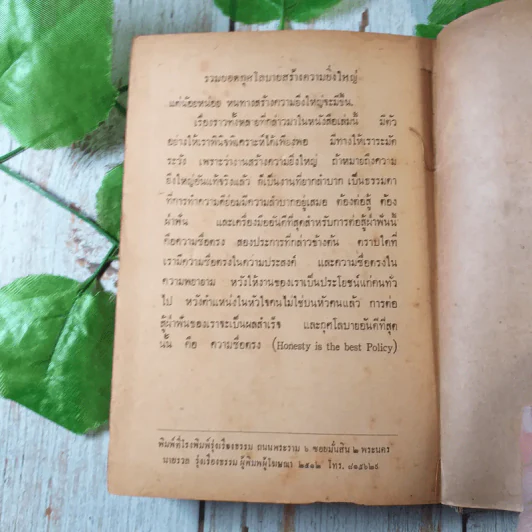 รวมยอดกุศโลบายสร้างความยิ่งใหญ่
แต่น้อยหน่อย หนทางสร้างความยิ่งใหญ่จะมีขึ้น.
เรื่องราวทั้งหลายที่กล่าวมาในหนังสือเล่มนี้ มีตัว
อย่างให้เราพินิจพิเคราะห์ได้เพียงพอ มีทางให้เราระมัด
ระวัง เพราะว่างานสร้างความยิ่งใหญ่ ถ้าหมายถึงความ
ยิ่งใหญ่อันแท้จริงแล้ว ก็เป็นงานที่ยากลำบาก เป็นธรรมดา
ที่การทำความดีย่อมมีความลำบากอยู่เสมอ ต้องต่อสู้ ต้อง
ฝ่าฟัน และเครื่องมืออันดีที่สุดสำหรับการต่อสู้ฝ่าฟันนี้
คือความซื่อตรง สองประการที่กล่าวข้างต้น ตราบใดที่
เรามีความซื่อตรงในความประสงค์ และความซื่อตรงใน
ความพยายาม หวังให้งานของเราเป็นประโยชน์แก่คนทั่ว
ไป หวังตำแหน่งในหัวใจคนไม่ใช่บนหัวคนแล้ว การต่อ
สู้ฝ่าฟันของเราจะเป็นผลสำเร็จ และกุศโลบายอันดีที่สุด
นั้น คือ ความซื่อตรง (Honesty is the best Policy)
พิมพ์ที่โรงพิมพ์รุ่งเรืองธรรม ถนนพระราม ๖ ซอยมั่นสิน ๒ พระนคร
นายรวล รุ่งเรืองธรรม ผู้พิมพ์ผู้โฆษณา ๒๕๑๒ โทร. ๘๑๕๖๒๘